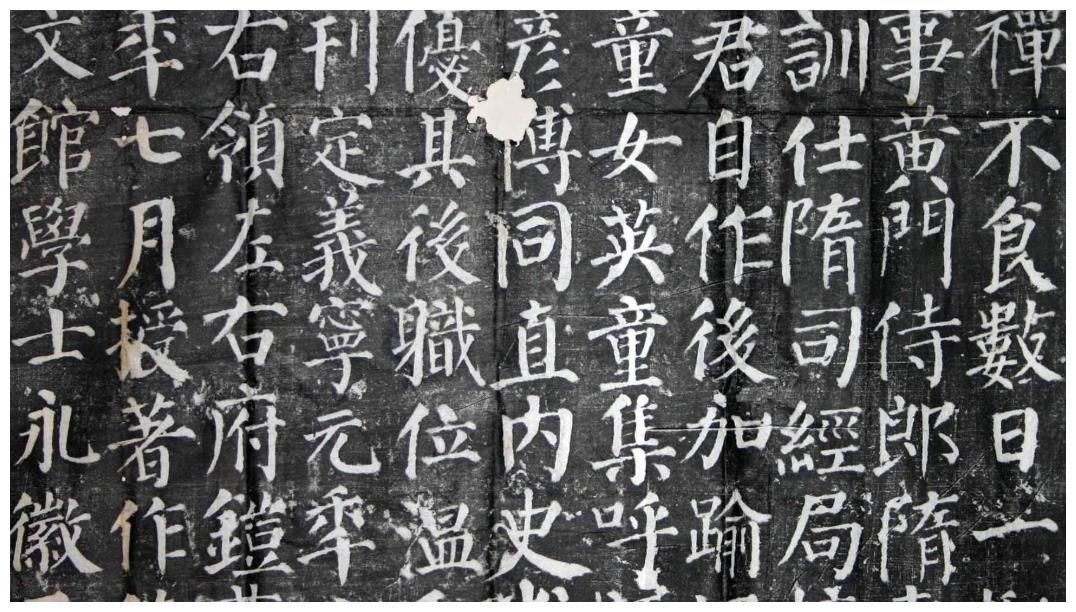 禪不食數日一
事黃門侍郎隋
訓仕隋司經局
君自作後加踰
童女英童集呼
彥博同直內史
優其後職位溫
刊定義寧元年
右領左右府鎧
年七月授著作
文館學士永徽